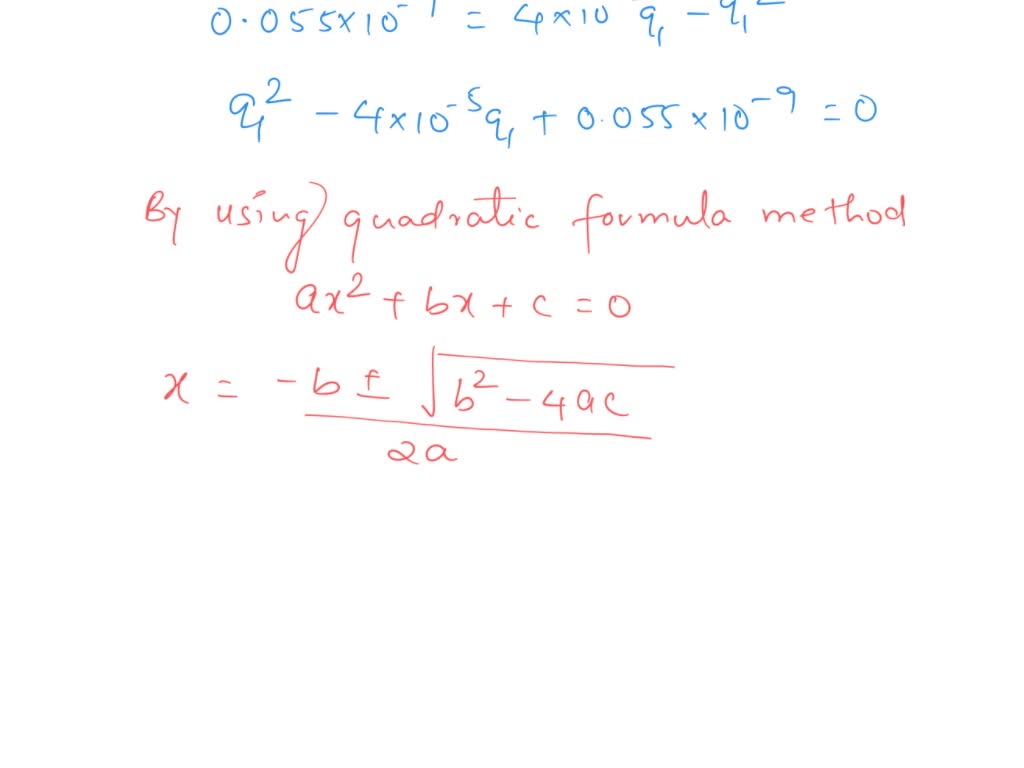 0.055×10⁻ = 4×10 q₁ − q₁²
q₁² − 4×10⁻⁵q₁ + 0.055×10⁻⁹ = 0
By using quadratic formula method
ax² + bx + c = 0
x = −b ± √(b² − 4ac)
2a